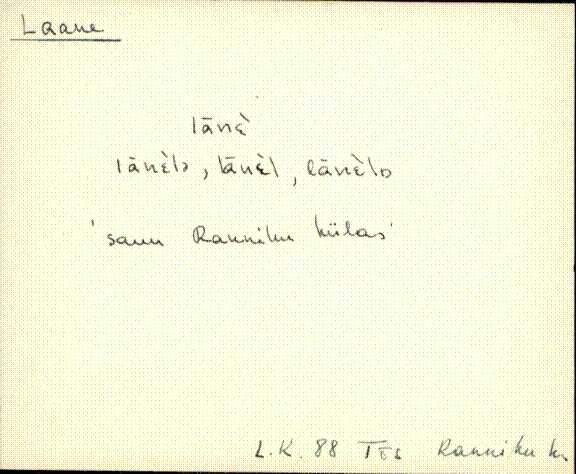 Laane
lānè
lānèlɒ, lānèl, lānèlɒ
'saun Ranniku külas'
L.K. 88 Tõs Ranniku k.